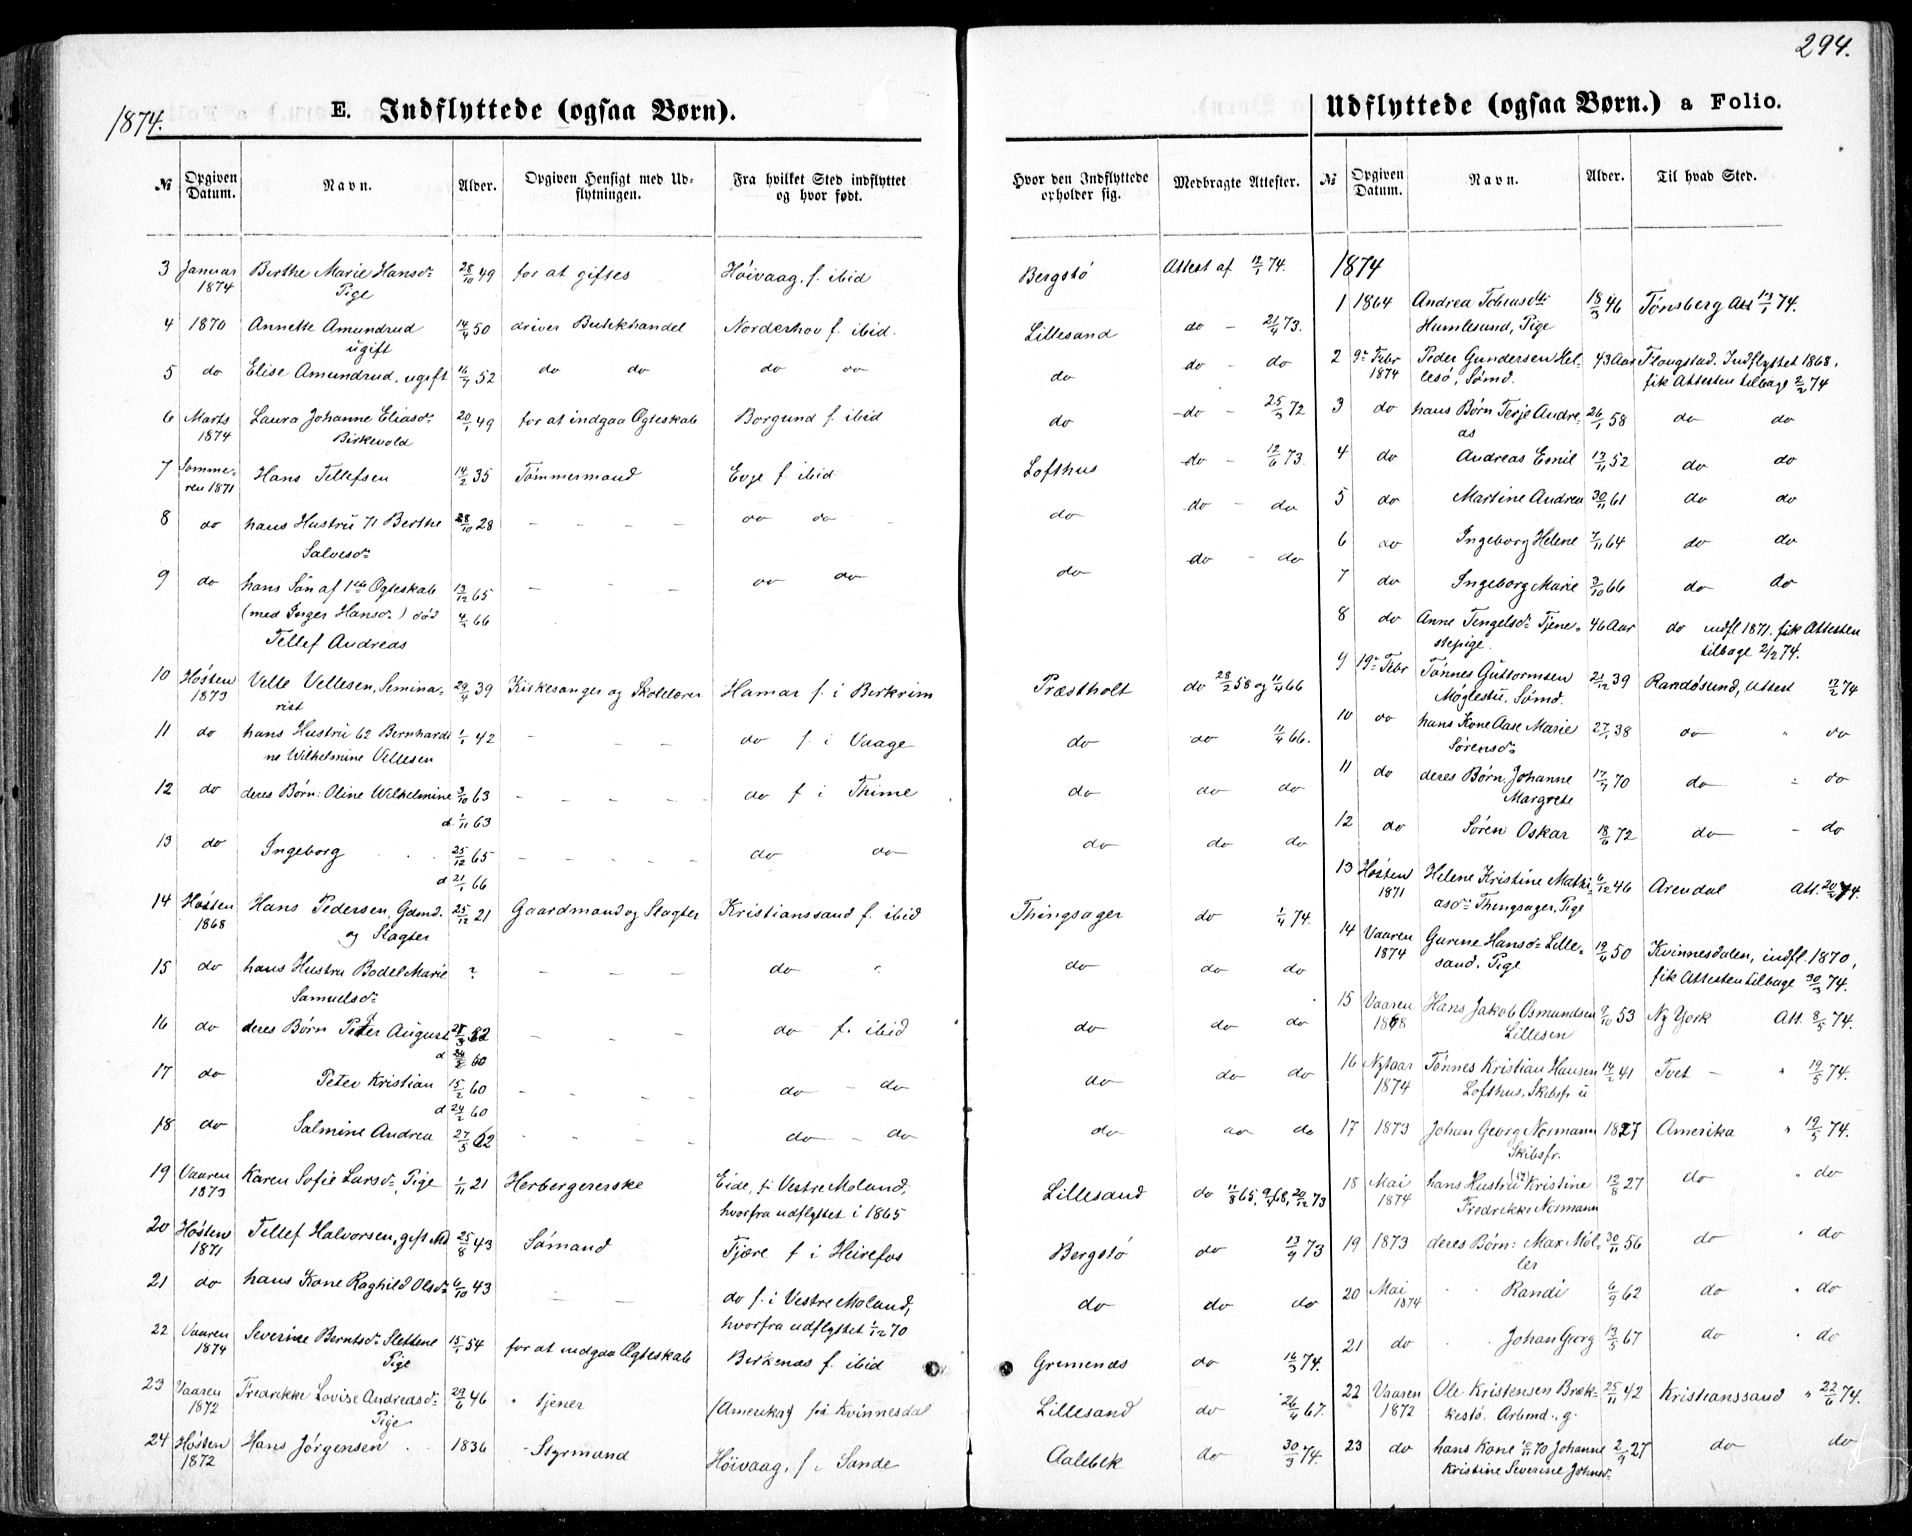 294.
1874.
E. Indflyttede (ogsaa Børn).
№ Opgiven Datum. Navn. Alder. Opgiven Hensigt med Udflytningen. Fra hvilket Sted indflyttet og hvor født. Hvor den Indflyttede opholder sig. Medbragte Attester.
3 Januar 1874 Berthe Marie Hansdr Pige 28/10 49 for at giftes Høivaag, f. ibid Bergstø Attest af 12/1 74.
4 1870 Annette Amundrud ugift 14/4 50 driver Butikhandel Norderhov f. ibid. Lillesand do - 21/4 73.
5 do Elise Amundrud, ugift 16/4 52 do do do do do do - do
6 Marts 1874 Laura Johanne Eliasdr Birkevold 20/1 49 for at indgaa Ægteskab Borgund f. ibid do do - 25/3 72
7 Sommeren 1871 Hans Tellefsen 14/2 35 Tømmermand Evje f. ibid Lofthus do - 12/6 73.
8 do hans Hustru 71 Berthe Salvesdr 28/10 28 - - - - do do - do do - do
9 do hans Søn af 1ste Ægteskab (med Inger Hansdr) død Tellef Andreas 13/12 65 4/2 66 - - - do do do do - do
10 Høsten 1873 Velle Vellesen, Seminarist 29/4 39 Kirkesanger og Skolelærer Hamar f. i Birkrim Præstholt do 28/2 58 og 11/4 66
11 do hans Hustru 62 Bernhardine Wilhelmine Vellesen 1/1 42 - - - do f. i Vaage do do 11/4 66.
12 do deres Børn: Oline Wilhelmine 3/10 63 d 1/11 63 - - - - - do f i Thime do do do
13 do Ingeborg 25/12 65 d 21/1 66 - - - - - do do do do do
14 Høsten 1868 Hans Pedersen, Gdmd. og Slagter 25/12 21 Gaardmand og Slagter Kristianssand f. ibid Thingsager do 1/4 74.
15 do hans Hustru Bodel Marie Samuelsdr ? - - - do do do do
16 do deres Børn Peder August 52 d 60 - - - do f. ibid do do do
17 do Peter Kristian 15/2 60 d 24/2 60 - - - - do - do do do do
18 do Salmine Andrea 27/5 62 - - - - do - do do do do
19 Vaaren 1873 Karen Sofie Larsdr, Pige 1/11 21 Herbergererske Eide, f. i Vestre Moland, hvorfra udflyttet i 1865 Lillesand do 11/8 65, 9/4 68, 20/12 73
20 Høsten 1871 Tellef Halvorsen, gift Md 25/8 43 Sømand Tjære f i Heirefos Bergstø do 13/9 73
21 do hans Kone Raghild Olsdr 6/10 43 - - do f. i Vestre Moland, hvorfra udflyttet 1/12 70 do do do
22 Vaaren 1874 Severine Berntsdr Slettene Pige 15/1 54 for at indgaa Ægteskab Birkenæs f. ibid Grimenæs do 16/3 74.
23 Vaaren 1872 Fredrikke Lovise Andreasdr Pige 29/6 46 tjener (Amerika) fra Kvinnesdal Lillesand do 26/4 67.
24 Høsten 1872 Hans Jørgensen 1836 Styrmand Høivaag, f. i Sande Aalebæk do 30/3 74.
Udflyttede (ogsaa Børn.) a Folio.
№ Opgiven Datum. Navn. Alder. Til hvad Sted.
1874
1 1864 Andrea Tobiasdtr Humlesund, Pige 18/3 46 Tønsberg Att 13/1 74.
2 9de Febr 1874 Peder Gundersen Hellesø, Sømd. 43 Aar Flougstad. Indflyttet 1868, fik Attesten tilbage 2/2 74
3 do hans Børn Terje Andreas 26/1 58 do do
4 do Andreas Emil 13/11 52 do do
5 do Martine Andrea 30/11 61 do do
6 do Ingeborg Helene 7/11 64 do do
7 do Ingeborg Marie 3/10 66 do do
8 do Anne Tengelsdr Tjenestepige. 46 Aar do indfl 1871. fik Attesten tilbage 2/2 74.
9 19de Febr Tønnes Guttormsen Møglestu, Sømd. 21/12 39 Randøsund, Attest 17/2 74
10 do hans Kone Aase Marie Sørensdr 27/1 38 do " do
11 do deres Børn: Johanne Margrete 17/7 70 do - do
12 do Søren Oskar 18/6 72 do - do
13 Høsten 1871 Helene Kristine Mathiasdr Thingsager, Pige 6/12 46 Arendal Att. 20/2 74.
14 Vaaren 1874 Gurine Hansdr Lillesand. Pige 19/4 50 Kvinnesdalen, indfl. 1870, fik Attesten tilbage 30/3 74.
15 Vaaren 1868 Hans Jakob Osmundsen Lillesen 9/10 53 Ny York Att. 8/5 74.
16 Nytaar 1874 Tønnes Kristian Hansen Lofthus, Skibsfr u 14/2 41 Tvet - " 19/5 74.
17 1873 Johan Georg Normann Skibsfr. 1827 Amerika " 19/5 74.
18 Mai 1874 hans Hustru (52) Kristine Fredrikke Normann 12/8 27 do " do
19 1873 deres Børn: Max Møller 30/11 56 do " do
20 Mai 1874 Randi 6/9 62 do " do
21 do Johan Georg 13/5 67 do " do
22 Vaaren 1872 Ole Kristensen Brækkestø, Arbmd., g. 25/11 42 Kristianssand " 22/6 74.
23 do hans Kone 70 Johanne Kristine Severine Johnsdr 2/9 27 do do